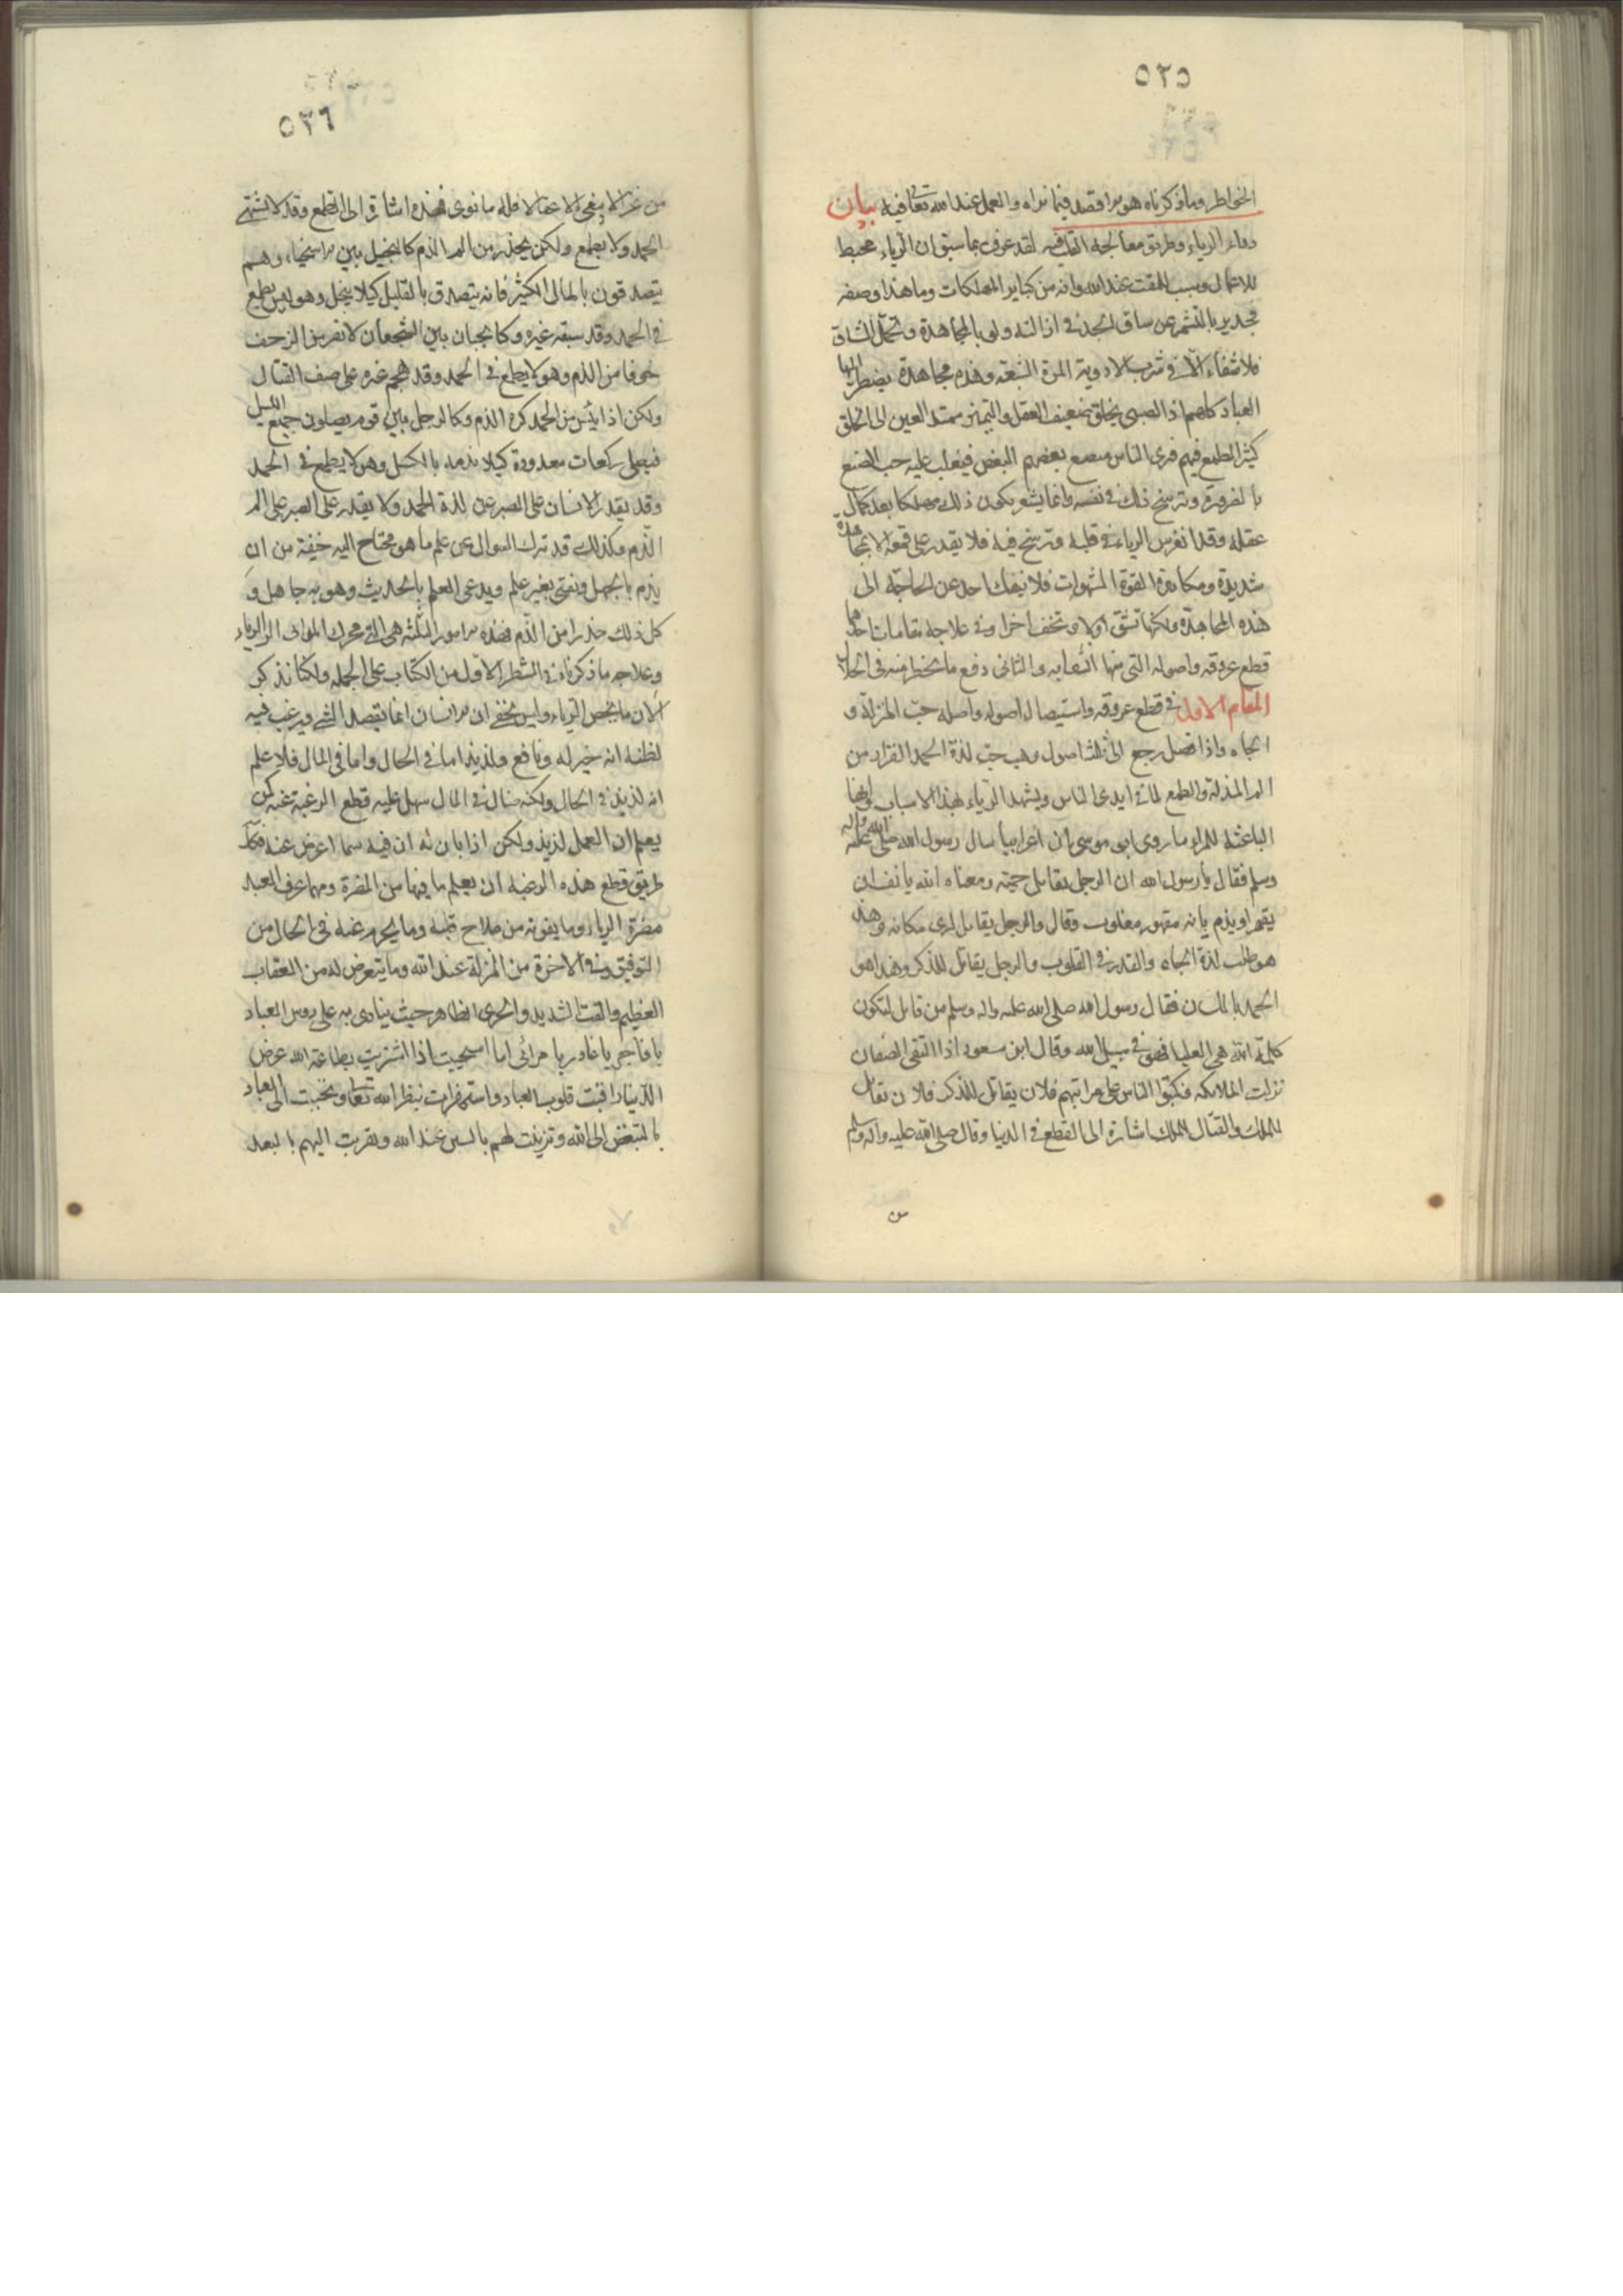 ٥٢٥
الخواطر وما ذكرناه هو مراقصد فيما نراه والعمل عند الله تعا فيه بيان
دواء الرياء وطريق معالجة القلب فيه لقد عرفت بما سبق ان الرياء محبط
للاعمال وسبب للمقت عند الله وانه من كباير المهلكات وما هذا وصفه
فجدير بالتشمر عن ساق الجد في ازالته ولو بالمجاهدة وتحمل المشاق
فلا شفاء الا في شرب الادوية المرة البشعة وهذه مجاهدة يضطر اليها
العباد كلهم اذ الصبي يخلق ضعيف العقل والتميز ممتد العين الى الخلق
كثير الطمع فيهم فيرى الناس يتصنع بعضهم لبعض فيغلب عليه حب التصنع
بالضرورة وترسخ ذلك في نفسه وانما يشعر بكونه ذلك مهلكا بعد كمال
عقله وقد انغرس الرياء في قلبه وترسخ فيه فلا يقدر على قمعه الا بمجاهدة
شديدة ومكابدة لقوة الشهوات فلا ينفك احد عن الحاجة الى
هذه المجاهدة ولكنها تشق اولا وتخف اخرا وفي علاجه مقامان احدهما
قطع عروقه واصوله التي منها انشعابه والثاني دفع ما يخطر منه في الحال
المقام الاول في قطع عروقه واستيصال اصوله واصله حب المنزلة و
الجاه واذا فصل رجع الى ثلثة اصول وهي حب لذة الحمد والفرار من
الم المذلة والطمع لما في ايدى الناس ويشهد للرياء بهذا الاسباب وانها
الباعثة للمراى ما روى ابى موسى ان اعرابيا سال رسول الله صلى الله عليه واله
وسلم فقال يا رسول الله ان الرجل يقاتل حمية ومعناه انه يانف ان
يقهر او يذم بانه مقهور مغلوب وقال والرجل يقاتل ليرى مكانه وهذا
هو طلب لذة الجاه والقدر في القلوب والرجل يقاتل للذكر وهذا هو
الحمد باللسان فقال رسول الله صلى الله عليه واله وسلم من قاتل لتكون
كلمة الله هي العليا فهو في سبيل الله وقال ابن مسعود اذا التقى الصفان
نزلت الملائكه فكتبوا الناس على مراتبهم فلان يقاتل للذكر فلان يقاتل
للملك والقتال للملك اشارة الى الطمع في الدنيا وقال صلى الله عليه واله وسلم
من
٥٢٦
من غزا لا يبغى الا عقالا فله ما نوى فهذه اشارة الى الطمع وقد لا يشتهي
الحمد ولا يطمع ولكن يحذر من الم الذم كالبخيل بين الاسخياء وهم
يتصدقون بالمال الكثير فانه يتصدق بالقليل كيلا يبخل وهو ليس يطمع
في الحمد وقد سبقه غيره وكالجبان بين الشجعان لا يفر من الزحف
خوفا من الذم وهو لا يطمع في الحمد وقد هجم غيره على صف القتال
ولكن اذا ايئس من الحمد كره الذم وكالرجل بين قوم يصلون جميع الليل
فيصلى ركعات معدودة كيلا يذم بالكسل وهو لا يطمع في الحمد
وقد يقدر الانسان على الصبر عن لذة الحمد ولا يقدر على الصبر على الم
الذم وكذلك قد ترك السوال عن علم ما هو محتاج اليه خيفة من ان
يذم بالجهل ويفتى بغير علم ويدعى العلم بالحديث وهو به جاهل و
كل ذلك حذرا من الذم فهذه الامور الثلثة هي التي تحرك المرائى الى الرياء
وعلاجه ما ذكرناه في الشطر الاول من الكتاب على الجمله ولكنا نذكر
الان ما يخص الرياء وليس يخفى ان الانسان انما يقصد الشئ ويرغب فيه
لظنه انه خير له ونافع ولذيذ اما في الحال واما في المال فلا علم
انه لذيذ في الحال ولكنه ضار في المال سهل عليه قطع الرغبة عنه كمن
يعلم ان العسل لذيذ ولكن اذا بان له ان فيه سما اعرض عنه فكذلك
طريق قطع هذه الرغبة ان يعلم ما فيها من المضرة ومهما عرف العبد
مضرة الرياء وما يفوته من صلاح قلبه وما يحرم عنه في الحال من
التوفيق وفي الاخرة من المنزلة عند الله وما يتعرض له من العقاب
العظيم والمقت الشديد والخزى الظاهر حيث ينادى به على روس العباد
يا فاجر يا غادر يا مرائى اما استحييت اذا اشتريت بطاعة الله عرض
الدنيا راقبت قلوب العباد واستهزات بنظر الله تعا وتحببت الى العباد
بالتبغض الى الله وتزينت لهم بالشين عند الله وتقربت اليهم بالبعد